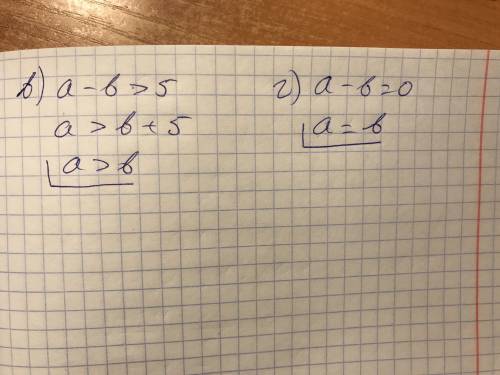 в) a - b > 5
a > b + 5
a > b
г) a - b = 0
a = b